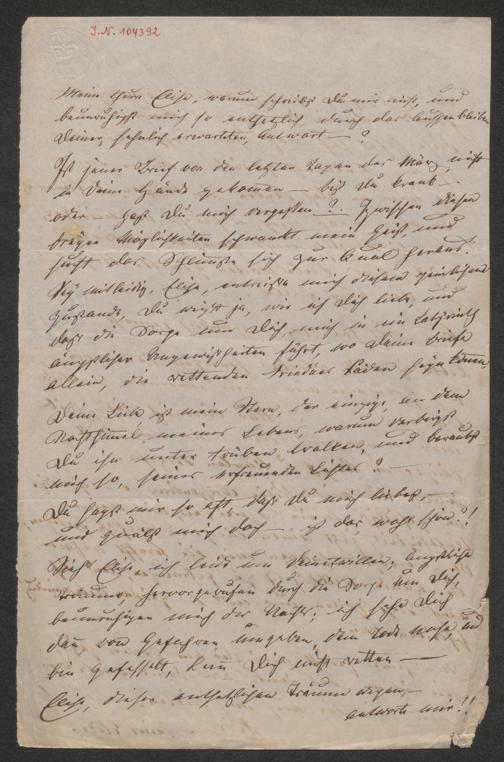 J.N. 104392
Meine theure Elise, warum schreibst Du mir nicht, und
beunruhigst mich so entsetzlich durch das Aussenbleiben
Deiner, sehnlich erwarteten, Antwort — ?
Ist jener Brief von den letzten Tagen des März, nicht
in Deine Hände gekommen — bist Du krank —
oder hast Du mich vergessen ? — Zwischen diesen
Möglichkeiten schwankt mein Geist, und
sucht das Schlimmste sich zur Qual heraus.
Sey mitleidig, Elise, entreisse mich diesem peinlichen
Zustande, Du weißt ja, wie ich Dich liebe, und
daß die Sorge um Dich, mich in ein Labyrinth
ängstlicher Ungewißheiten führt, wo Deine Briefe
allein, die rettenden Faden seyn können.
Deine Liebe ist mein Stern, der einzige, an dem
Nachthimmel meines Lebens, warum verbirgst
Du ihn unter trüben Wolken, und beraubst
mich so, seines erfreuenden Lichtes ? —
Du sagst mir so oft, daß Du mich liebst —
und quälst mich doch — ist das, wohl schön ? !
Ach Elise, ich leide um Deinetwillen, ängstliche
Träume, hervorgerufen durch die Sorge um Dich,
beunruhigen mich des Nachts; ich sehe Dich
dann von Gefahren umgeben, dem Tode nahe, und
bin gefesselt, kann Dich nicht retten —
Elise, dieser entsetzlichen Träume wegen —
antworte mir !!